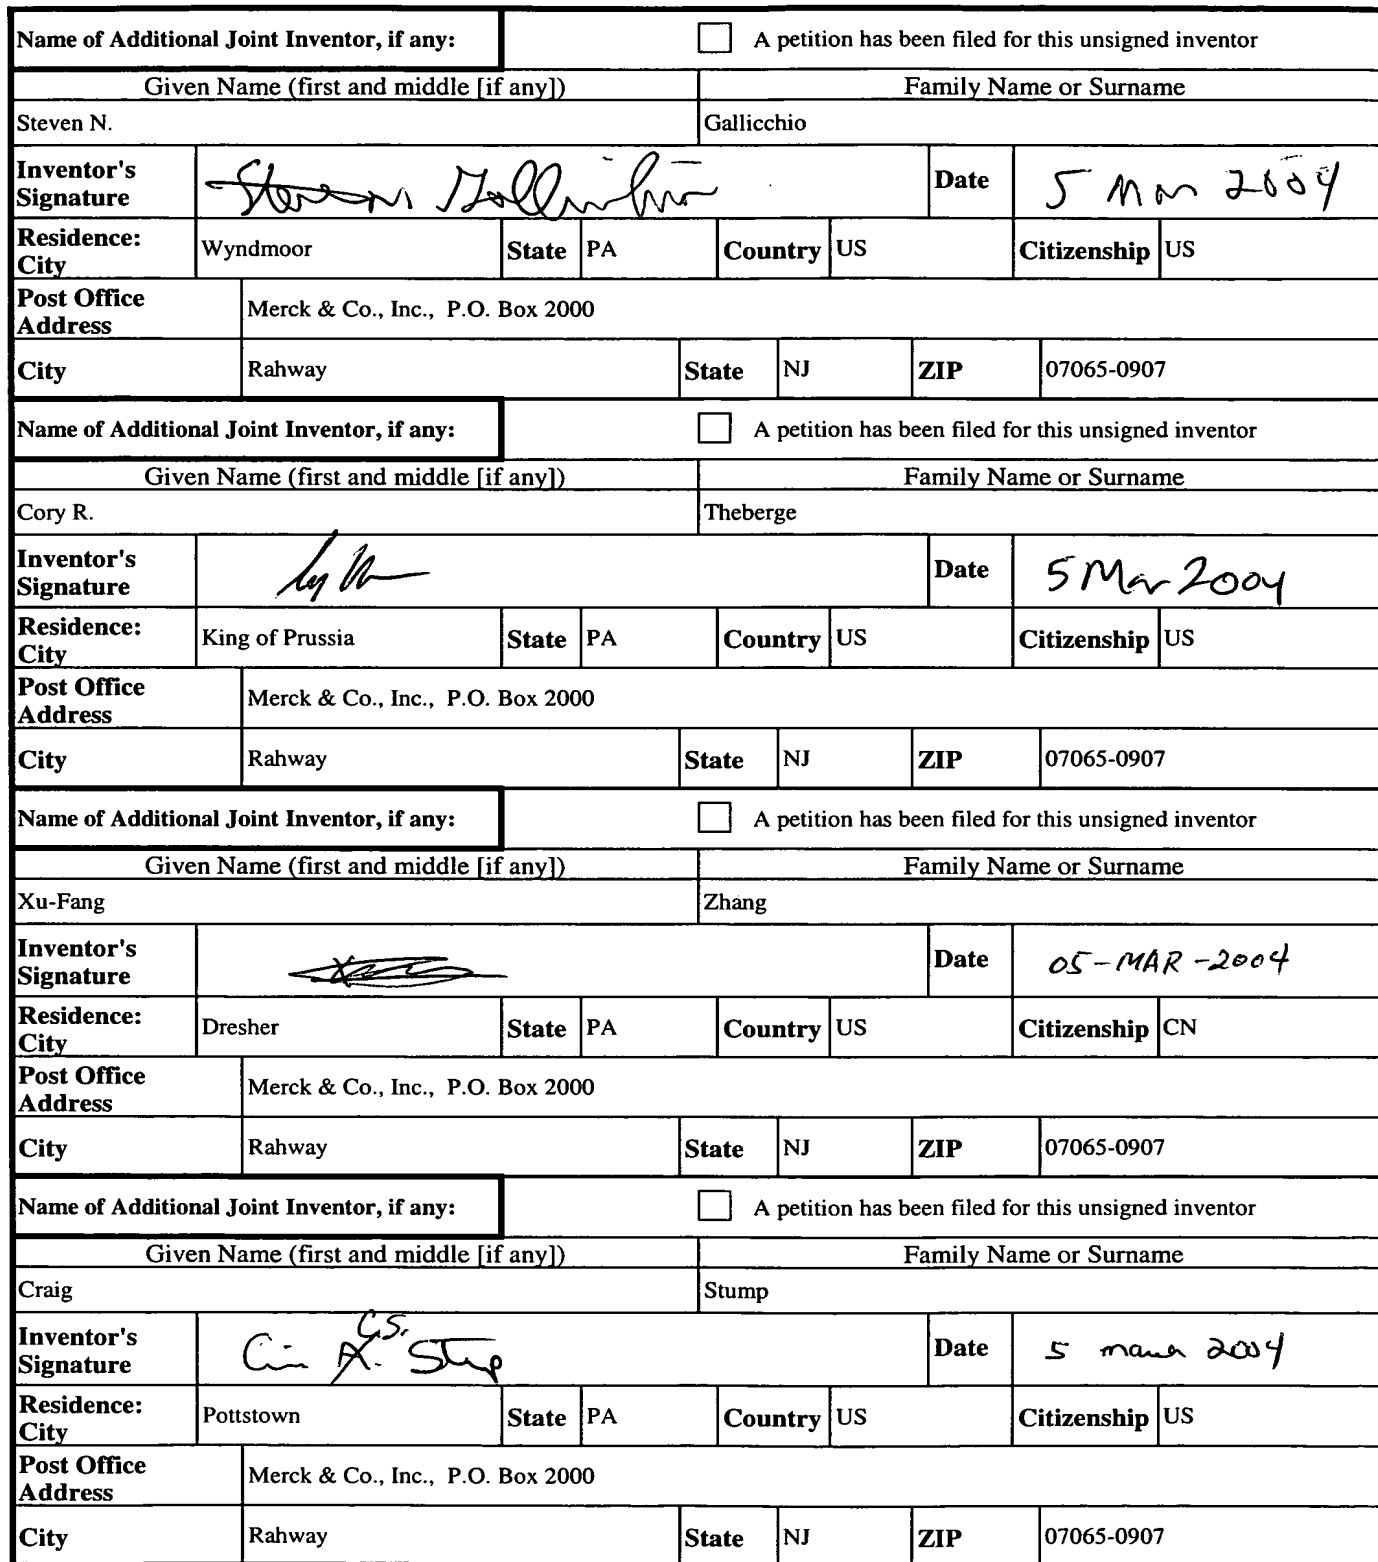 Name of Additional Joint Inventor, if any: A petition has been filed for this unsigned inventor
Given Name (first and middle [if any]) Family Name or Surname
Steven N. Gallicchio
Inventor's Signature Steven Gallicchio Date 5 Mar 2004
Residence: City Wyndmoor State PA Country US Citizenship US
Post Office Address Merck & Co., Inc., P.O. Box 2000
City Rahway State NJ ZIP 07065-0907
Name of Additional Joint Inventor, if any: A petition has been filed for this unsigned inventor
Given Name (first and middle [if any]) Family Name or Surname
Cory R. Theberge
Inventor's Signature Date 5 Mar 2004
Residence: City King of Prussia State PA Country US Citizenship US
Post Office Address Merck & Co., Inc., P.O. Box 2000
City Rahway State NJ ZIP 07065-0907
Name of Additional Joint Inventor, if any: A petition has been filed for this unsigned inventor
Given Name (first and middle [if any]) Family Name or Surname
Xu-Fang Zhang
Inventor's Signature Date 05-MAR-2004
Residence: City Dresher State PA Country US Citizenship CN
Post Office Address Merck & Co., Inc., P.O. Box 2000
City Rahway State NJ ZIP 07065-0907
Name of Additional Joint Inventor, if any: A petition has been filed for this unsigned inventor
Given Name (first and middle [if any]) Family Name or Surname
Craig Stump
C.S.
Inventor's Signature A. Stump Date 5 March 2004
Residence: City Pottstown State PA Country US Citizenship US
Post Office Address Merck & Co., Inc., P.O. Box 2000
City Rahway State NJ ZIP 07065-0907